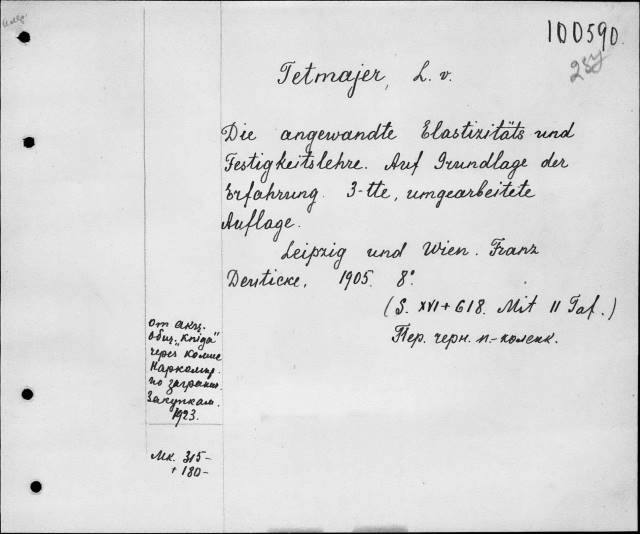 100590.
257
Tetmajer, L. v.
Die angewandte Elastizitäts und
Festigkeitslehre. Auf Grundlage der
Erfahrung. 3-tte, umgearbeitete
Auflage.
Leipzig und Wien. Franz
Deuticke, 1905. 8°.
(S. XVI + 618. Mit 11 Taf.)
Пер. черн. п.-коленк.
от акц.
общ. „Kniga"
через комис
Наркомпр.
по загранич.
Закупкам.
1923.
Mk. 315-
+ 180-